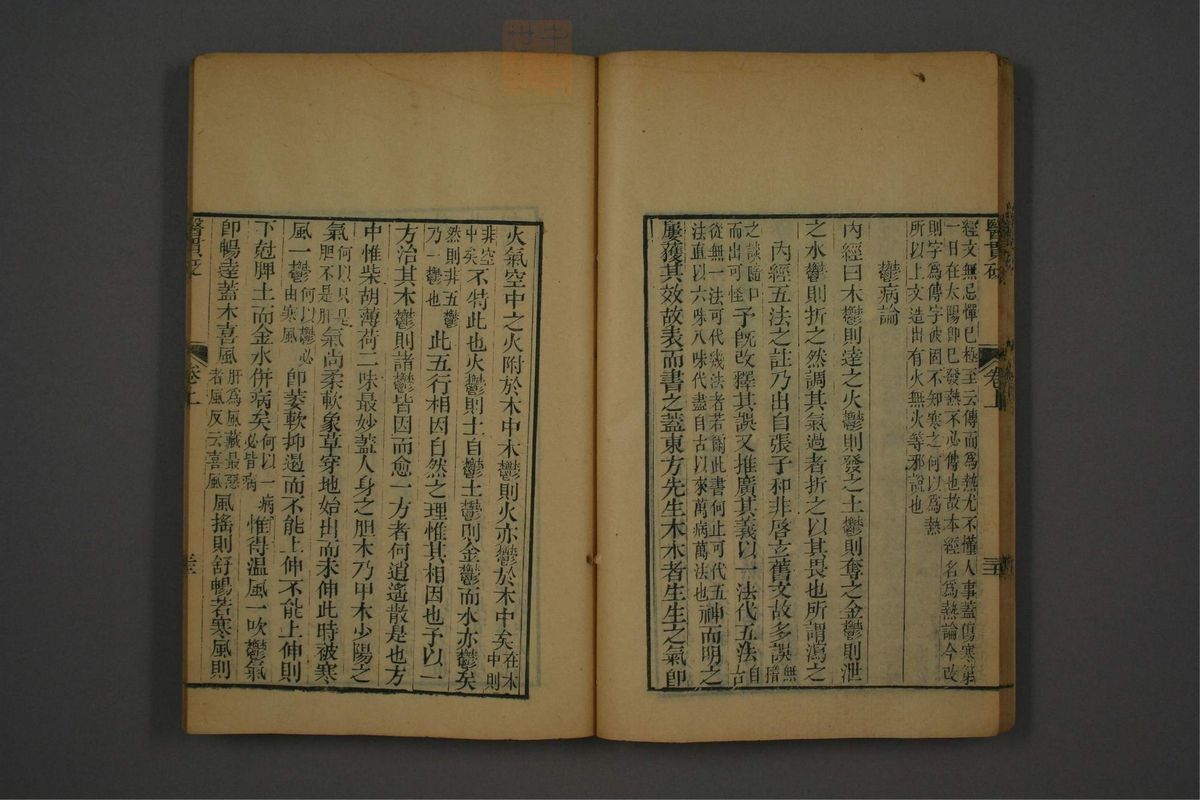 醫貫砭
卷上
三五
經文無忌憚已極至云傳而爲熱尤不懂人事蓋傷寒第
一日在太陽卽已發熱不必傳也故本經名爲熱論今改
則字爲傳字彼因不知寒之何以爲熱
所以上文造出有火無火等邪說也
鬱病論
內經曰木鬱則達之火鬱則發之土鬱則奪之金鬱則泄
之水鬱則折之然調其氣過者折之以其畏也所謂瀉之
內經五法之註乃出自張子和非啓玄舊文故多誤無
之談隨口
而出可怪予旣改釋其誤又推廣其義以一法代五法自
從無一法可代幾法者若爾此書何止可代五神而明之
法直以六味八味代盡自古以來萬病萬法也
屢獲其效故表而書之蓋東方先生木木者生生之氣卽
火氣空中之火附於木中木鬱則火亦鬱於木中矣在木中則
非空中矣不特此也火鬱則土自鬱土鬱則金鬱而水亦鬱矣
然則非五鬱乃一鬱也此五行相因自然之理惟其相因也予以一
方治其木鬱則諸鬱皆因而愈一方者何逍遙散是也方
中惟柴胡薄荷二味最妙蓋人身之胆木乃甲木少陽之
氣何以只是胆不是肝氣尚柔軟象草穿地始出而未伸此時被寒
風一鬱何以鬱必由寒風卽萎軟抑遏而不能上伸不能上伸則
下尅脾土而金水併病矣何以一病必皆病惟得溫風一吹鬱氣
卽暢達蓋木喜風肝爲風藏最惡者風反云喜風風搖則舒暢若寒風則
醫貫砭
卷上
三五